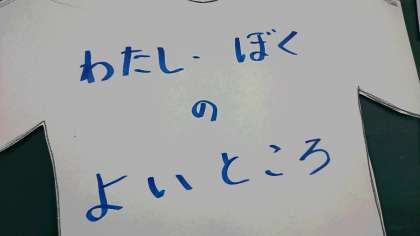 わたし・ぼく
の
よいところ